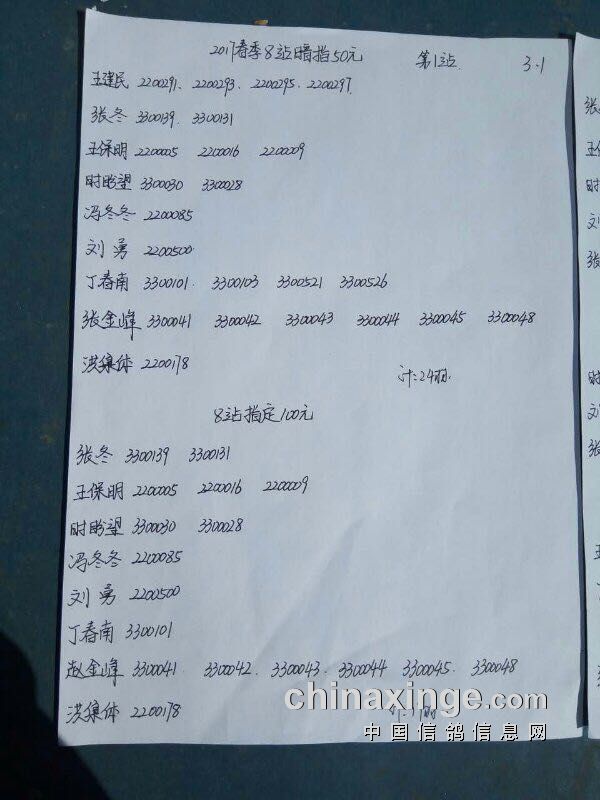 2017春季8站暗指50元 第1站 3.1
王建民 2200291、2200293、2200295、2200297
张冬 3300139、3300131
王保明 2200005 2200016 2200009
时盼望 3300030 3300028
冯冬冬 2200085
刘勇 2200500
丁春南 3300101、3300103 3300521 3300526
张金峰 3300041 3300042 3300043 3300044 3300045 3300048
洪集体 2200178
计:24羽
8站指定100元
张冬 3300139 3300131
王保明 2200005 2200016 2200009
时盼望 3300030 3300028
冯冬冬 2200085
刘勇 2200500
丁春南 3300101
赵金峰 3300041、3300042、3300043、3300044 3300045、3300048
洪集体 2200178
chinaxinge.com
中国信鸽信息网